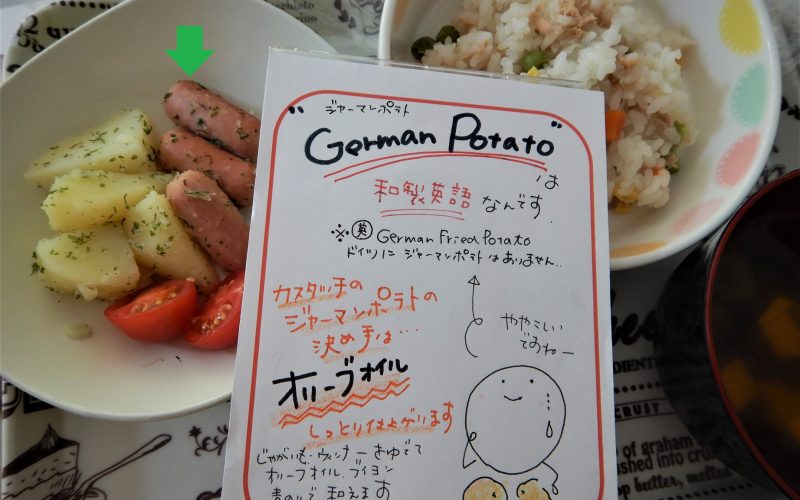 ジャーマンポテト
"German Potato"
は
和製英語 なんです
※英 German Fried Potato
ドイツに ジャーマンポテトはありません..
カスタッチの
ジャーマンポテトの
決め手は…
ややこしい
ですねー
オリーブオイル
しっとり仕上がります
じゃがいも・ウィンナーをゆでて
オリーブオイル、ブイヨン
青のりで 和えます
of graham